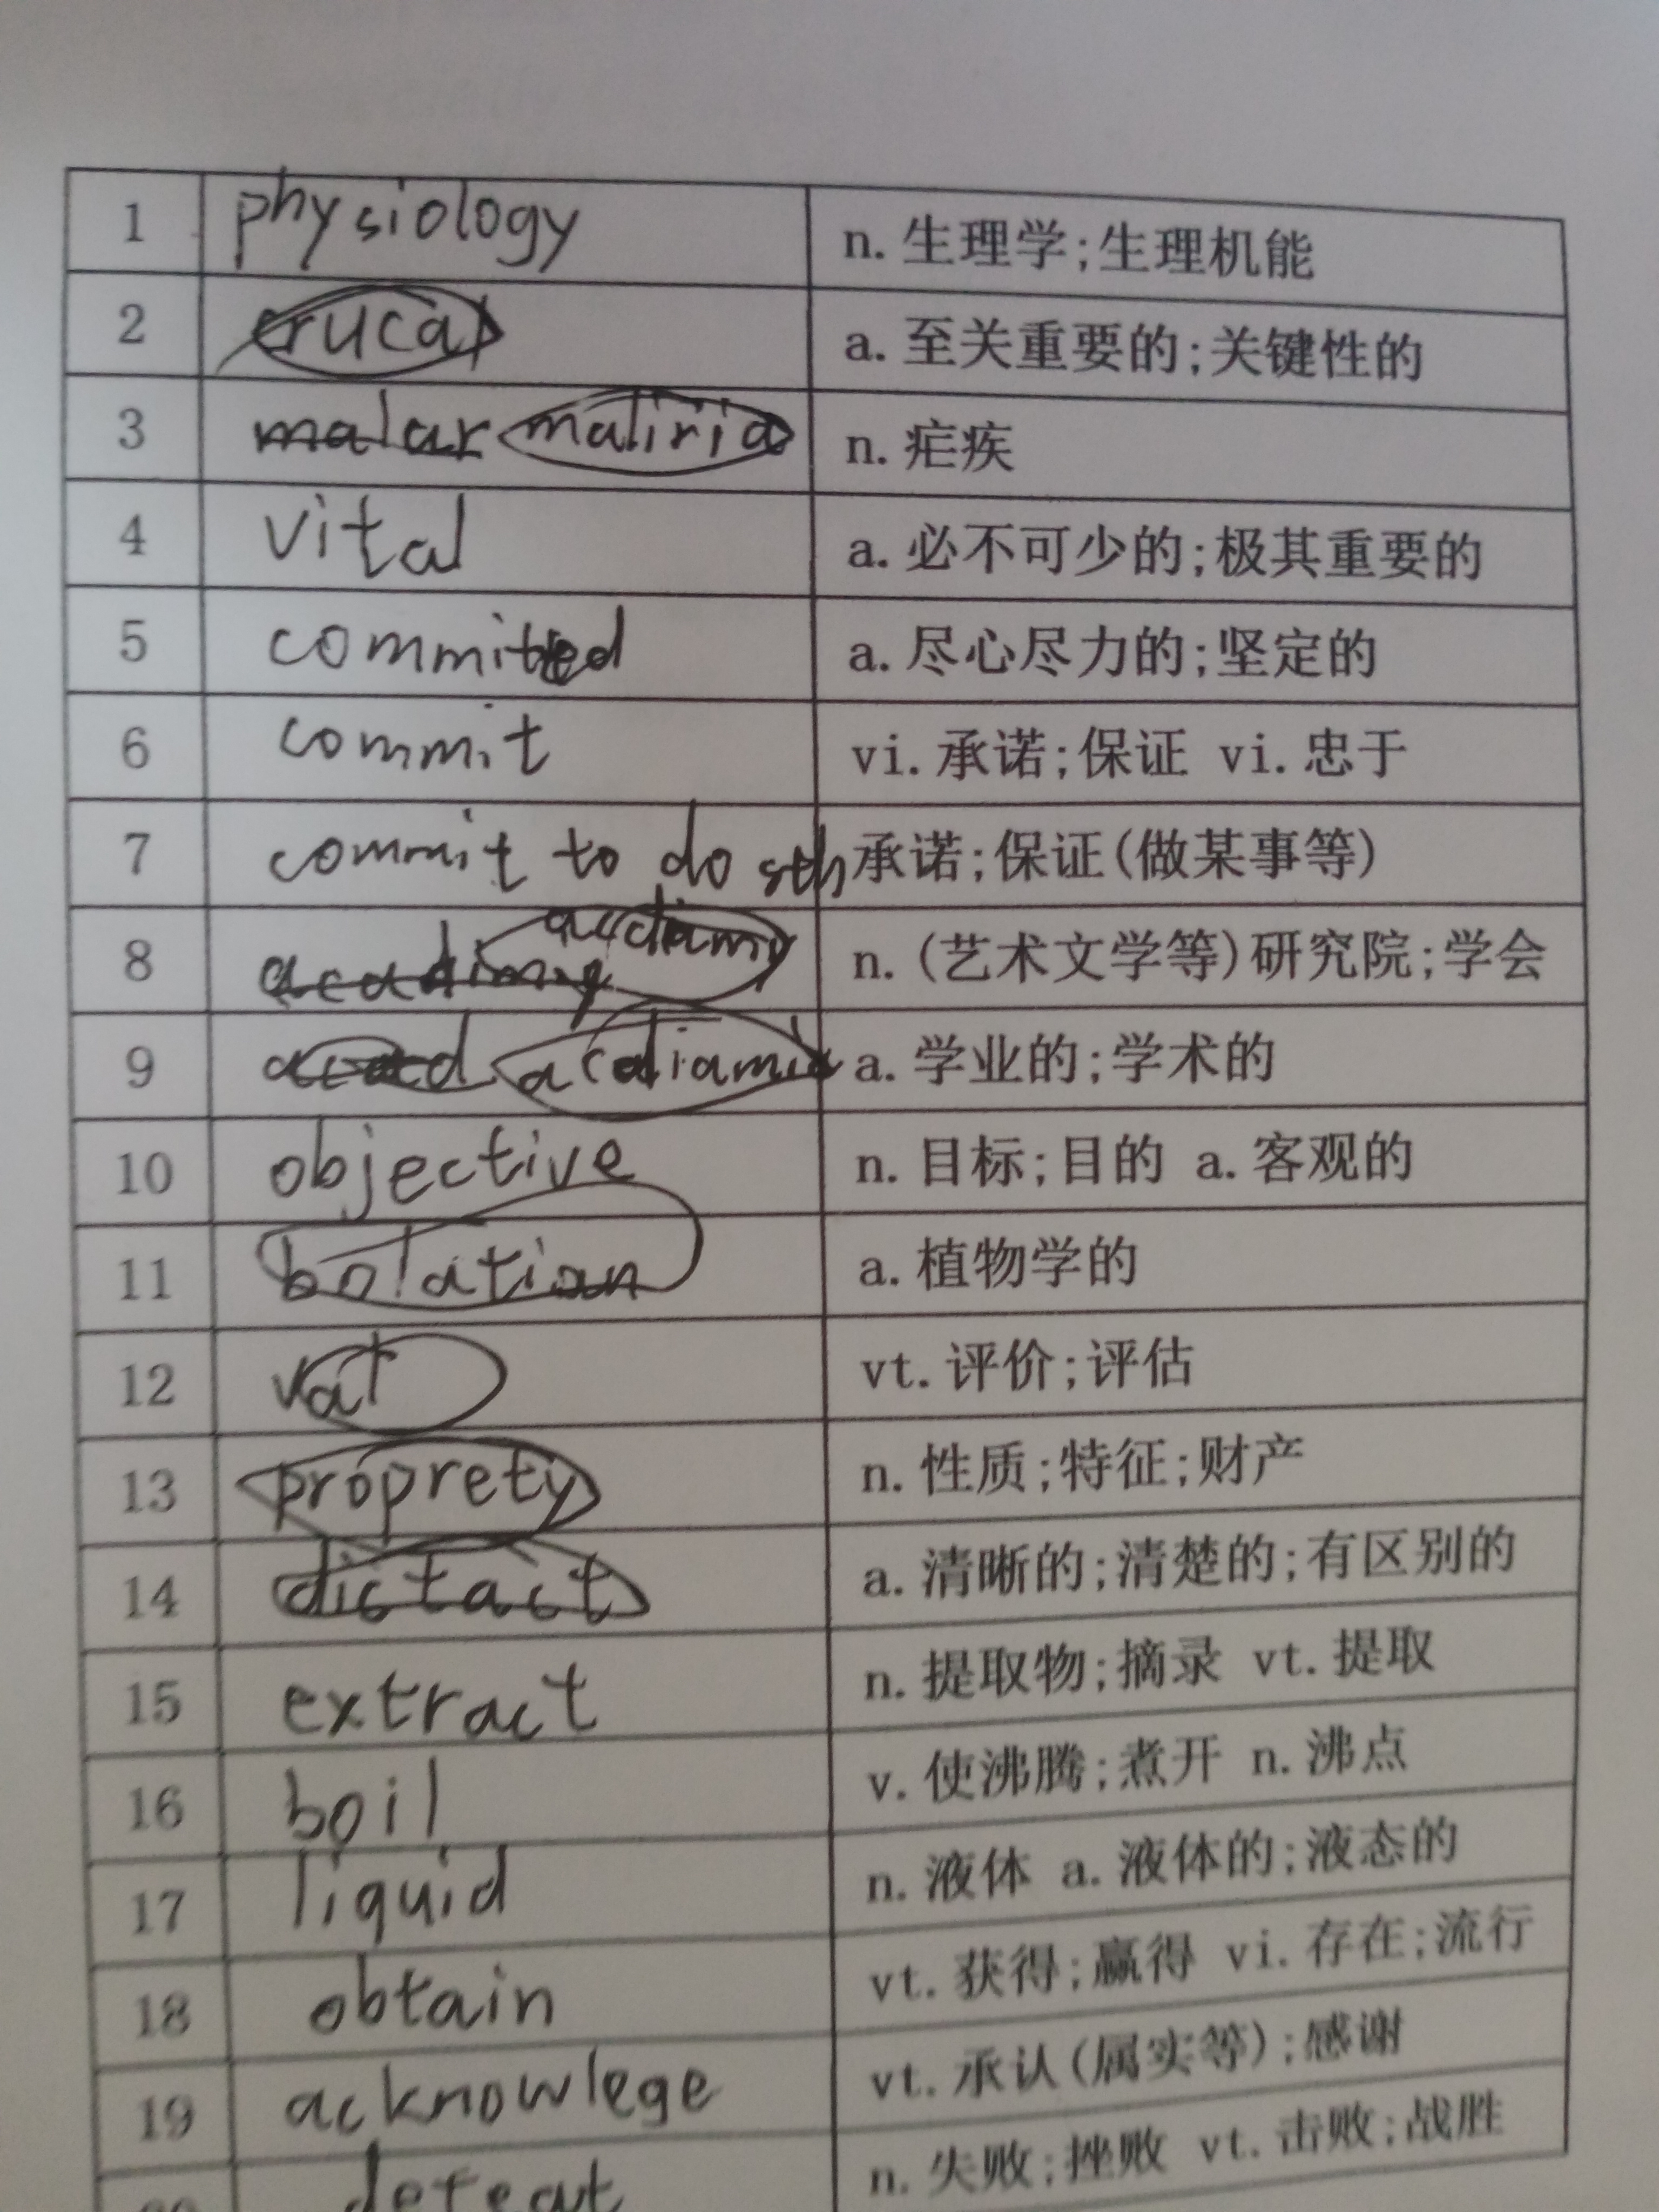 1 physiology n. 生理学;生理机能
2 crucal a. 至关重要的;关键性的
3 malar maliria n. 疟疾
4 vital a. 必不可少的;极其重要的
5 commited a. 尽心尽力的;坚定的
6 commit vi. 承诺;保证 vi. 忠于
7 commit to do sth 承诺;保证(做某事等)
8 acadimy n. (艺术文学等)研究院;学会
9 acad a. 学业的;学术的
10 objective n. 目标;目的 a. 客观的
11 a. 植物学的
12 vat vt. 评价;评估
13 proprety n. 性质;特征;财产
14 dictact a. 清晰的;清楚的;有区别的
15 extract n. 提取物;摘录 vt. 提取
16 boil v. 使沸腾;煮开 n. 沸点
17 liquid n. 液体 a. 液体的;液态的
18 obtain vt. 获得;赢得 vi. 存在;流行
19 acknowlege vt. 承认(属实等);感谢
20 defeat n. 失败;挫败 vt. 击败;战胜